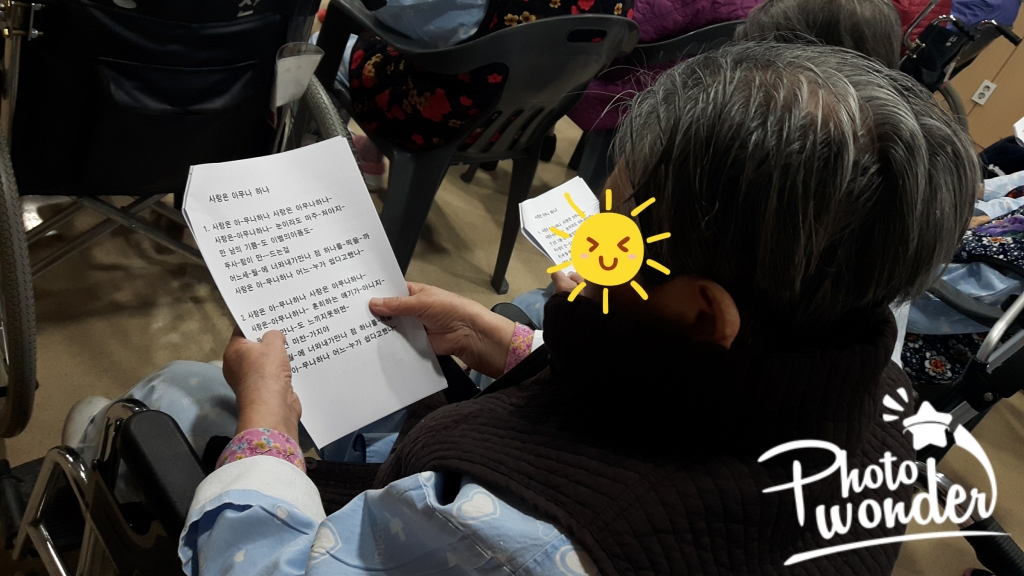 사랑은 아무나 하나
1. 사랑은 아-무나하나 사랑은 아무나하나-
사랑은-아무나하나- 눈이라도 마주-쳐야지-
만 남의 기쁨-도 이별의아픔도-
두사-람이 만--드는걸
어느세-월-에 너와내가만나 점 하나를-찍을-까
사랑은 아-무나하나 어느-누가 쉽다고했나-
2. 사랑은 아-무나하나 사랑은 아무나하나-
사랑은-아무나하나- 흔히하는 얘기가-아니지-
만나-도 느끼지못하면-
마찬-가지야
월-에 너와내가만나 점 하나를
아-무나하나 어느-누가 쉽다고했나
사랑은 아무나 하나
Photo
wonder